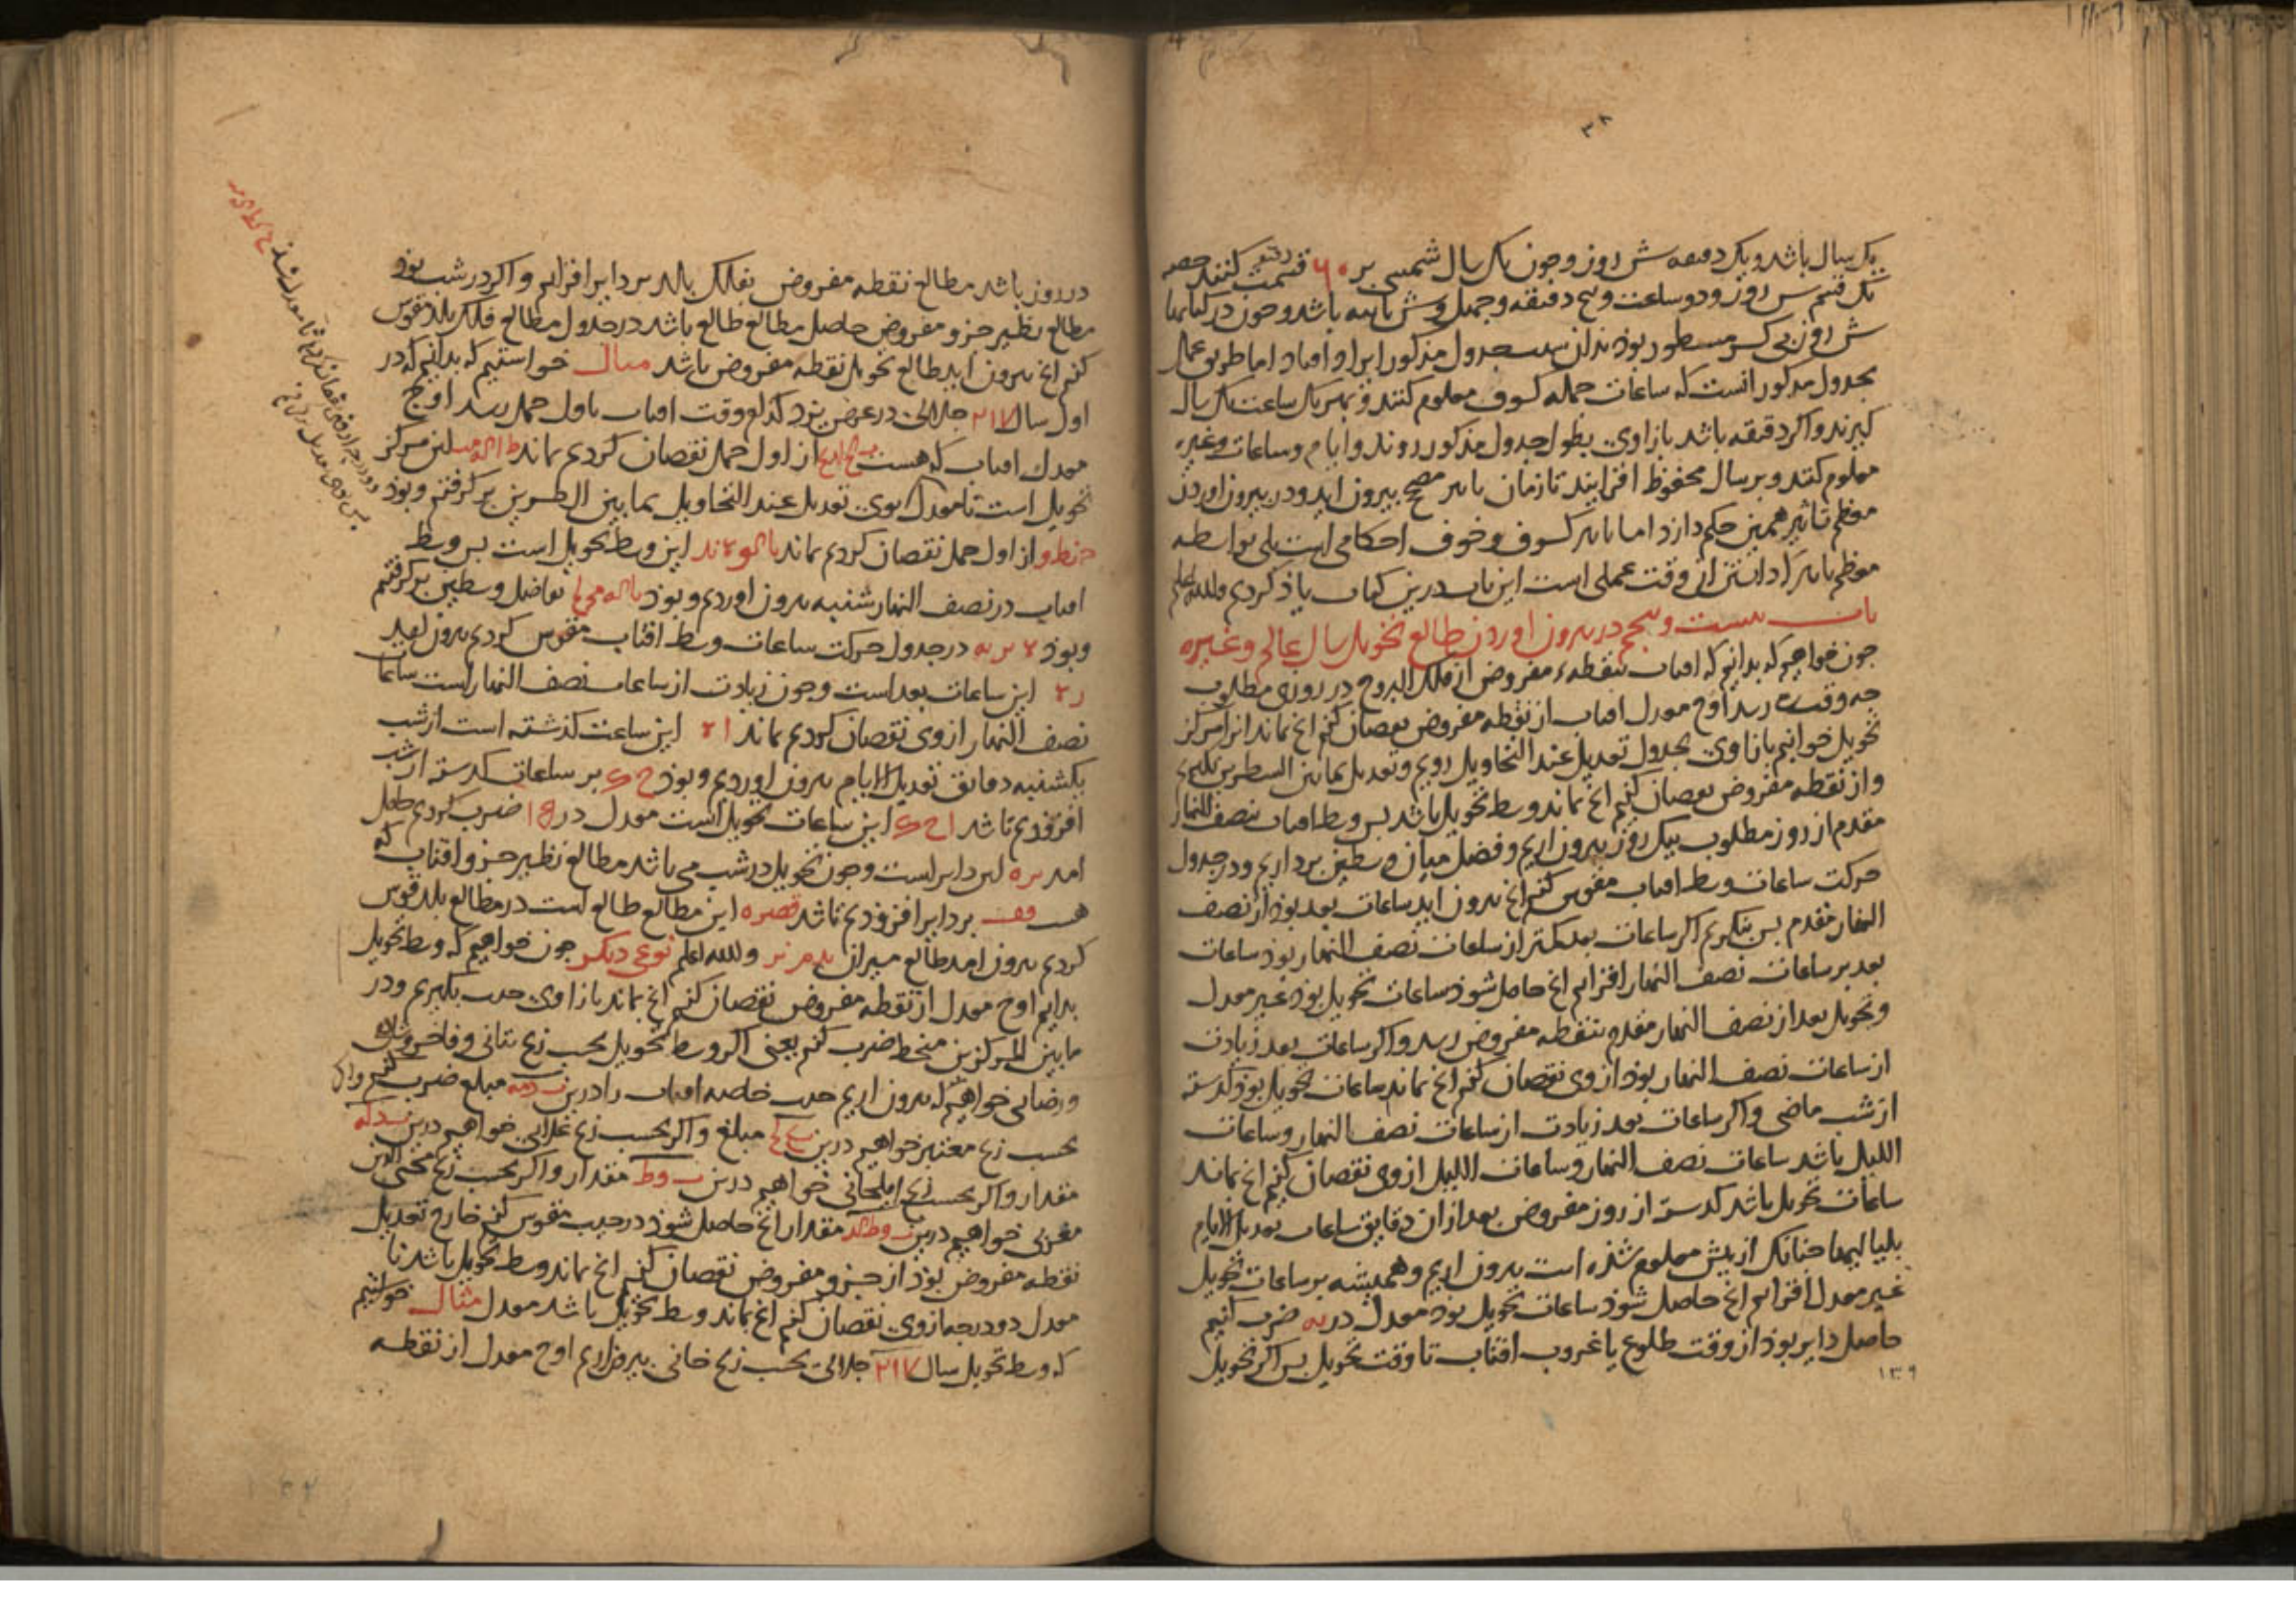 ۳۸
یک سال باشد و یک دقیقه شش روز و چون یک سال شمسی بر ۶۰ قسمت کنند حصه
یک قسم شش روز و دو ساعت و پنج دقیقه و چهل و شش ثانیه باشد و چون در کتابها
شش روز بی کسر مسطور بود بدان سبب جدول مذکور ایراد افتاد اما طریق عمل
بجدول مذکور انست که ساعات جمله کسوف معلوم کنند و بهر یک ساعت یک سال
کیرند و اکر دقیقه باشد بازاوی بطول جدول مذکور روند و ایام و ساعات و غیره
معلوم کنند و بر سال محفوظ افزایند تا زمان تاثیر مصحح بیرون اید و در بیرون اوردن
معظم تاثیر همین حکم دارد اما تاثیر کسوف و خسوف احکامی است بلی بواسطه
معظم تاثیر که دانستن ان وقت عملی است این باب درین کتاب یاذ کردیم والله اعلم
باب بیست و پنجم در بیرون اوردن طالع تحویل سال عالم و غیره
چون خواهیم که بدانیم که افتاب بنقطهٔ مفروض از فلک البروج در روزی مطلوب
چه وقت رسد اوج معدل افتاب از نقطه مفروض نقصان کنیم انچ بماند انرا مرکز
تحویل خوانیم بازاوی بجدول تعدیل عند التحاویل رویم و تعدیل بمابین السطرین بکیریم
و از نقطه مفروض نقصان کنیم انچ بماند وسط تحویل باشد بس وسط افتاب بنصف النهار
مقدم از روز مطلوب بیک روز بیرون اریم و فضل میان وسطین برداریم و در جدول
حرکت ساعات وسط افتاب مقوس کنیم انچ بیرون اید ساعات بعد بوذ از نصف
النهار مقدم بس بنکریم اکر ساعات بعد کمتر از ساعات نصف النهار بوذ ساعات
بعد بر ساعات نصف النهار افزایم انچ حاصل شوذ ساعات تحویل بوذ غیر معدل
و تحویل بعد از نصف النهار مقدم بنقطه مفروض رسد و اکر ساعات بعد زیادت
از ساعات نصف النهار بوذ از وی نقصان کنیم انچ بماند ساعات تحویل بوذ کذشته
از شب ماضی و اکر ساعات بعد زیادت از ساعات نصف النهار و ساعات
اللیل باشد ساعات نصف النهار و ساعات اللیل از وی نقصان کنیم انچ بماند
ساعات تحویل باشد کذشته از روز مفروض بعد ازان دقایق ساعات تعدیل الایام
بلیالیها چنانک از پیش معلوم شذه است بیرون اریم و همیشه بر ساعات تحویل
غیر معدل افزایم انچ حاصل شوذ ساعات تحویل بوذ معدل در یه ضرب کنیم
حاصل دایر بوذ از وقت طلوع یا غروب افتاب تا وقت تحویل بس اکر تحویل
۱۳۹
در روز باشد مطالع نقطه مفروض بفلک بلد بر دایر افزایم و اکر در شب بوذ
مطالع نظیر جزو مفروض حاصل مطالع طالع باشد در جدول مطالع فلک بلد مقوس
کنیم انچ بیرون اید طالع تحویل نقطه مفروض باشد مثال خواستیم که بدانیم که در
اول سال ۲۱۷ جلالی در عرض یزد کدام وقت افتاب باول حمل رسد اوج
معدل افتاب که هست از اول حمل نقصان کردیم بماند این مرکز
تحویل است تا معدل بوی تعدیل عند التحاویل بمابین السطرین بر کرفتیم و بوذ
از اول حمل نقصان کردیم بماند این وسط تحویل است بس وسط
افتاب در نصف النهار شنبه بیرون اوردیم و بوذ تفاضل وسطین بر کرفتیم
و بوذ در جدول حرکت ساعات وسط افتاب مقوس کردیم بیرون امد
این ساعات بعد است و چون زیادت از ساعات نصف النهار است ساعات
نصف النهار از وی نقصان کردیم بماند این ساعت کذشته است از شب
یکشنبه دقایق تعدیل الایام بیرون اوردیم و بوذ بر ساعات کذشته از شب
افزودیم تا شد این ساعات تحویل است معدل در ضرب کردیم حاصل
امد این دایر است و چون تحویل در شب می باشد مطالع نظیر جزو افتاب که
هست بر دایر افزودیم تا شد این مطالع طالع است در مطالع بلد قوس
کردیم بیرون امد طالع میزان والله اعلم نوعی دیکر چون خواهیم که وسط تحویل
بدانیم اوج معدل از نقطه مفروض نقصان کنیم انچ بماند بازاوی جیب بکیریم و در
ما بین المرکزین منحط ضرب کنیم یعنی اکر وسط تحویل بحسب زیج بتانی و فاخر و شاهی
و رضائی خواهیم که بیرون اریم جیب خاصه افتاب را درین مبلغ ضرب کنیم و اکر
بحسب زیج معتبر خواهیم درین مبلغ و اکر بحسب زیج علائی خواهیم درین
مقدار و اکر بحسب زیج ایلخانی خواهیم درین مقدار و اکر بحسب زیج محیی الدین
مغربی خواهیم درین مقدار انچ حاصل شوذ در جیب مقوس کنیم خارج تعدیل
نقطه مفروض بوذ از جزو مفروض نقصان کنیم انچ بماند وسط تحویل باشد تا
معدل دو درجه از وی نقصان کنیم انچ بماند وسط تحویل باشد معدل مثال خواستیم
که وسط تحویل سال ۲۱۷ جلالی بحسب زیج خانی بیرون اریم اوج معدل از نقطه